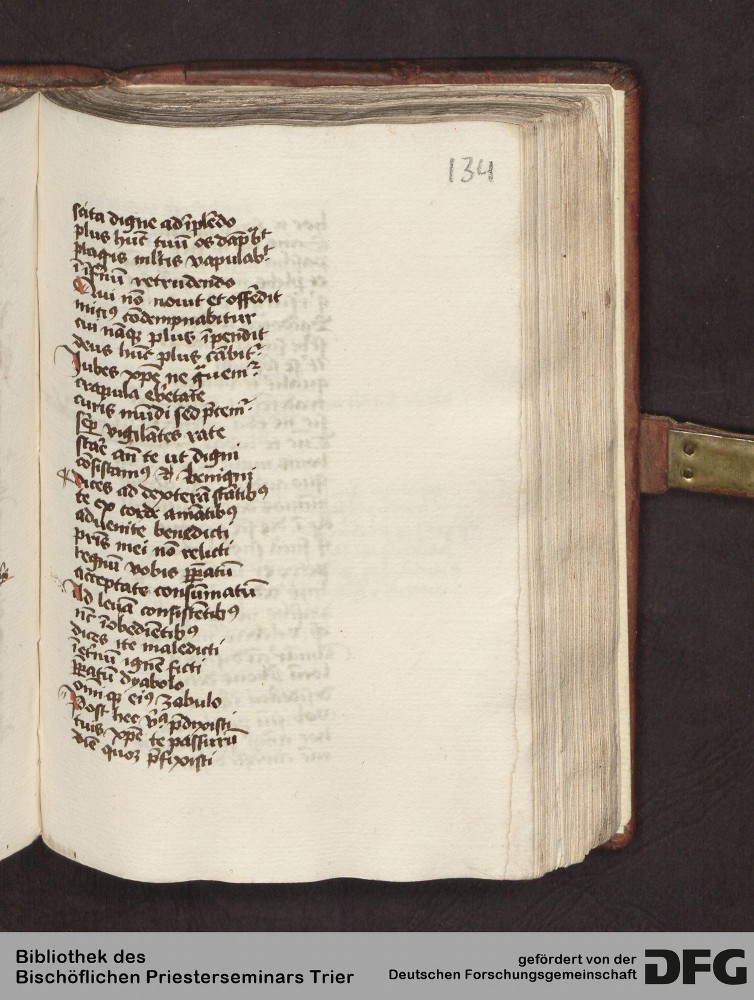 134
scita digne adĩplẽdo
plus hũc tuũ os dãpbᵗ
plagis ml̃tis vapulabᵗ
ĩ ĩfʳnũ retrudendo
Qui nõ nouit et offẽdit
mitiꝰ cõdempnabitur
cui nãqꝫ plus ĩpendit
deus hũc plus cãbitʳ
Jubes xp̃e ne ǥuemʳ
crapula ebᵉtate
curis mũdi sed p̃cemʳ
sep̱ vigilãtes vate
stare an̄ te ut digni
cõsistamꝰ et benigni
Dices ad dexterã stãtibꝰ
te ex corde amãtibꝰ
aduenite benedicti
pr̃is mei nõ relicti
regnũ vobis p̱patũ
acceptate consũmatũ
Ad leuã consistẽtibꝰ
ĩobediẽtibꝰ
dices ite maledicti
ĩ etʳnũ ignẽ ficti
p̱patũ dyabolo
eiꝰ zabulo
Post hec p̃dixisti
tuis xp̃e te passurũ
diẽ quoqꝫ p̃fixisti
Bibliothek des
Bischöflichen Priesterseminars Trier
gefördert von der
Deutschen Forschungsgemeinschaft
DFG